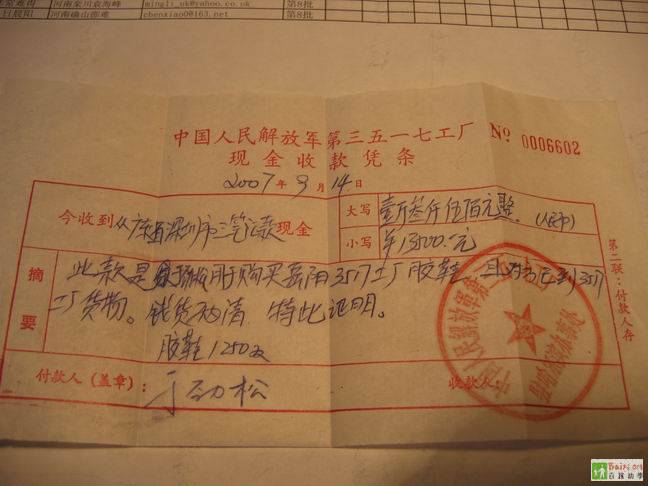 河南栾川袁海峰 mingli_uk@yahoo.co.uk 第8批
日晨阳 河南确山邵难 chenxiao0@163.net 第8批
中国人民解放军第三五一七工厂 No 0006602
现金收款凭条
2007年9月14日
今收到 从 深圳市 现金
大写 壹万叁仟伍佰元整。(人民币)
小写 ¥13500.元
摘要
此款是 用于购买岳阳3517工厂胶鞋 3517
工厂货物。钱货两清 特此证明。
胶鞋1250双
付款人(盖章): 于劲松 收款人:
第二联:付款人存
中国人民解放军第
Baixiom
百援助学